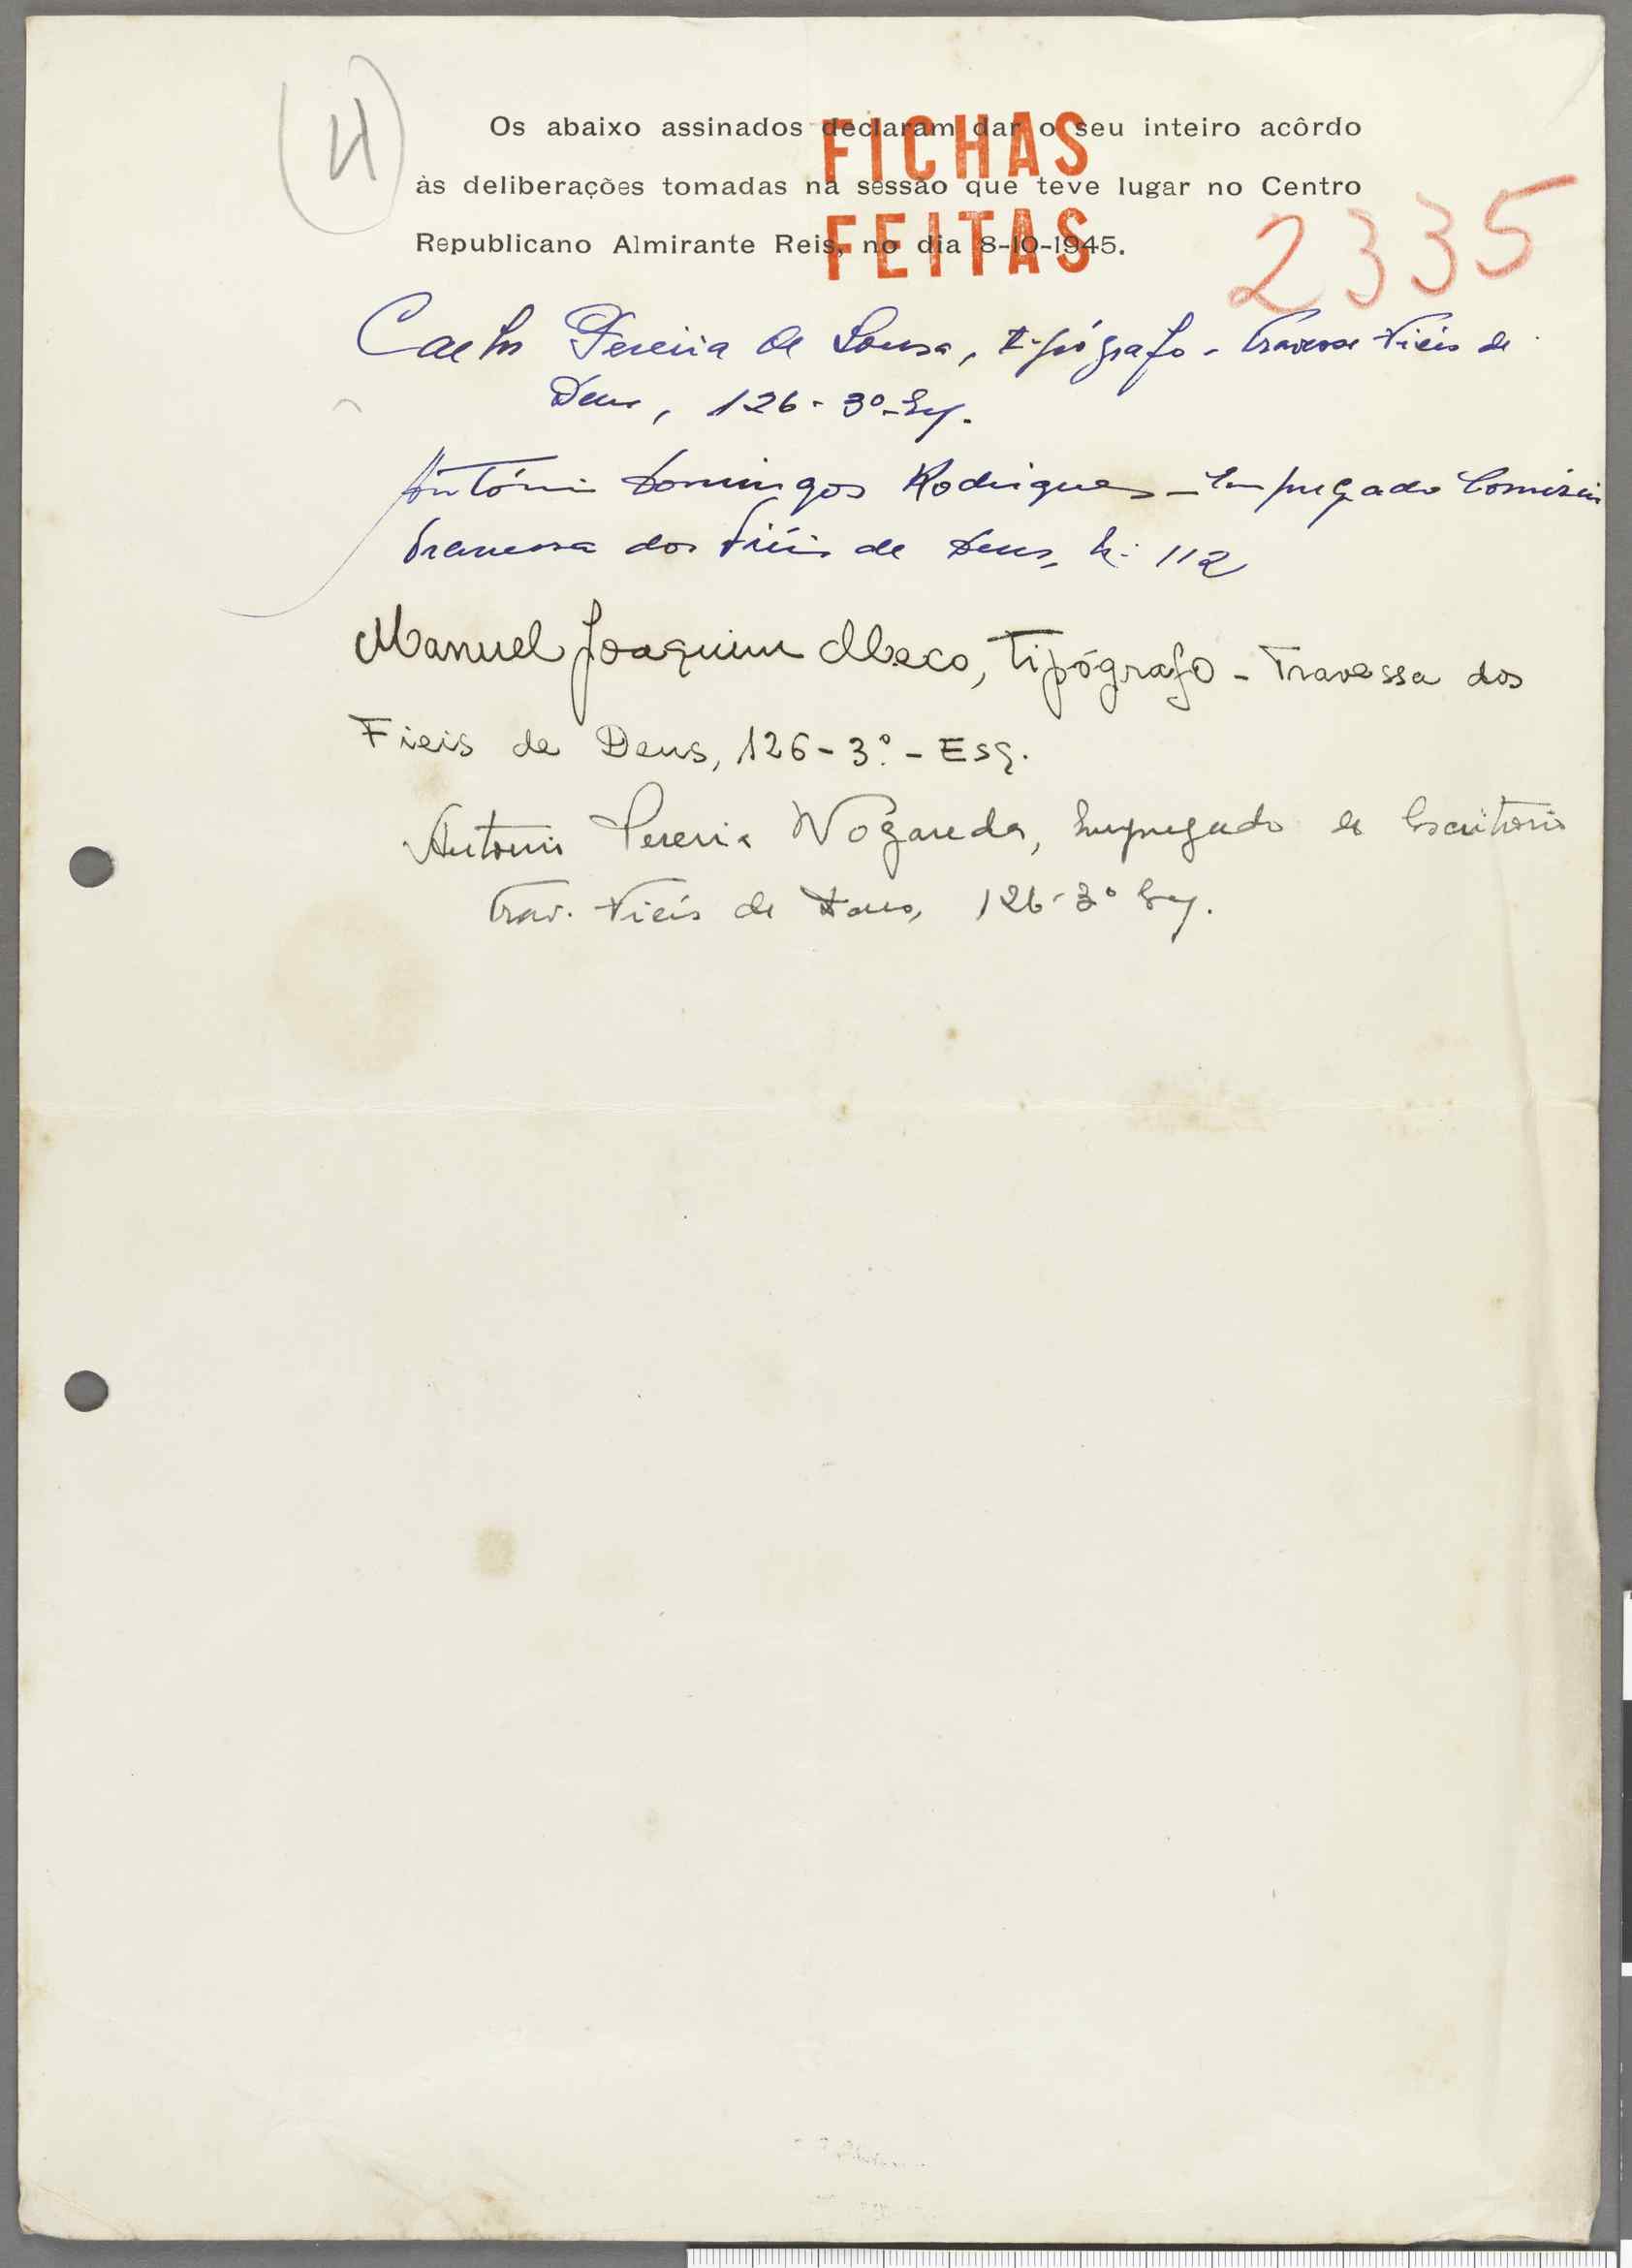 4
Os abaixo assinados declaram dar o seu inteiro acôrdo
às deliberações tomadas na sessão que teve lugar no Centro
Republicano Almirante Reis, no dia 8-10-1945.
FICHAS
FEITAS
2335
Carlos Pereira de Sousa, tipógrafo - Travessa Fieis de
Deus, 126 - 3º - Esq.
António Domingos Rodrigues - Empregado Comércio
Travessa dos Fiéis de Deus, N.º 112
Manuel Joaquim Maco, Tipógrafo - Travessa dos
Fieis de Deus, 126 - 3.º - Esq.
Antonio Pereira Nogareda, Empregado de Escritorio
Trav. Fieis de Deus, 126-3º Esq.